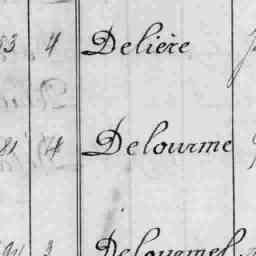 53 4 Delière
81 4 Delourme
2 Delourmel